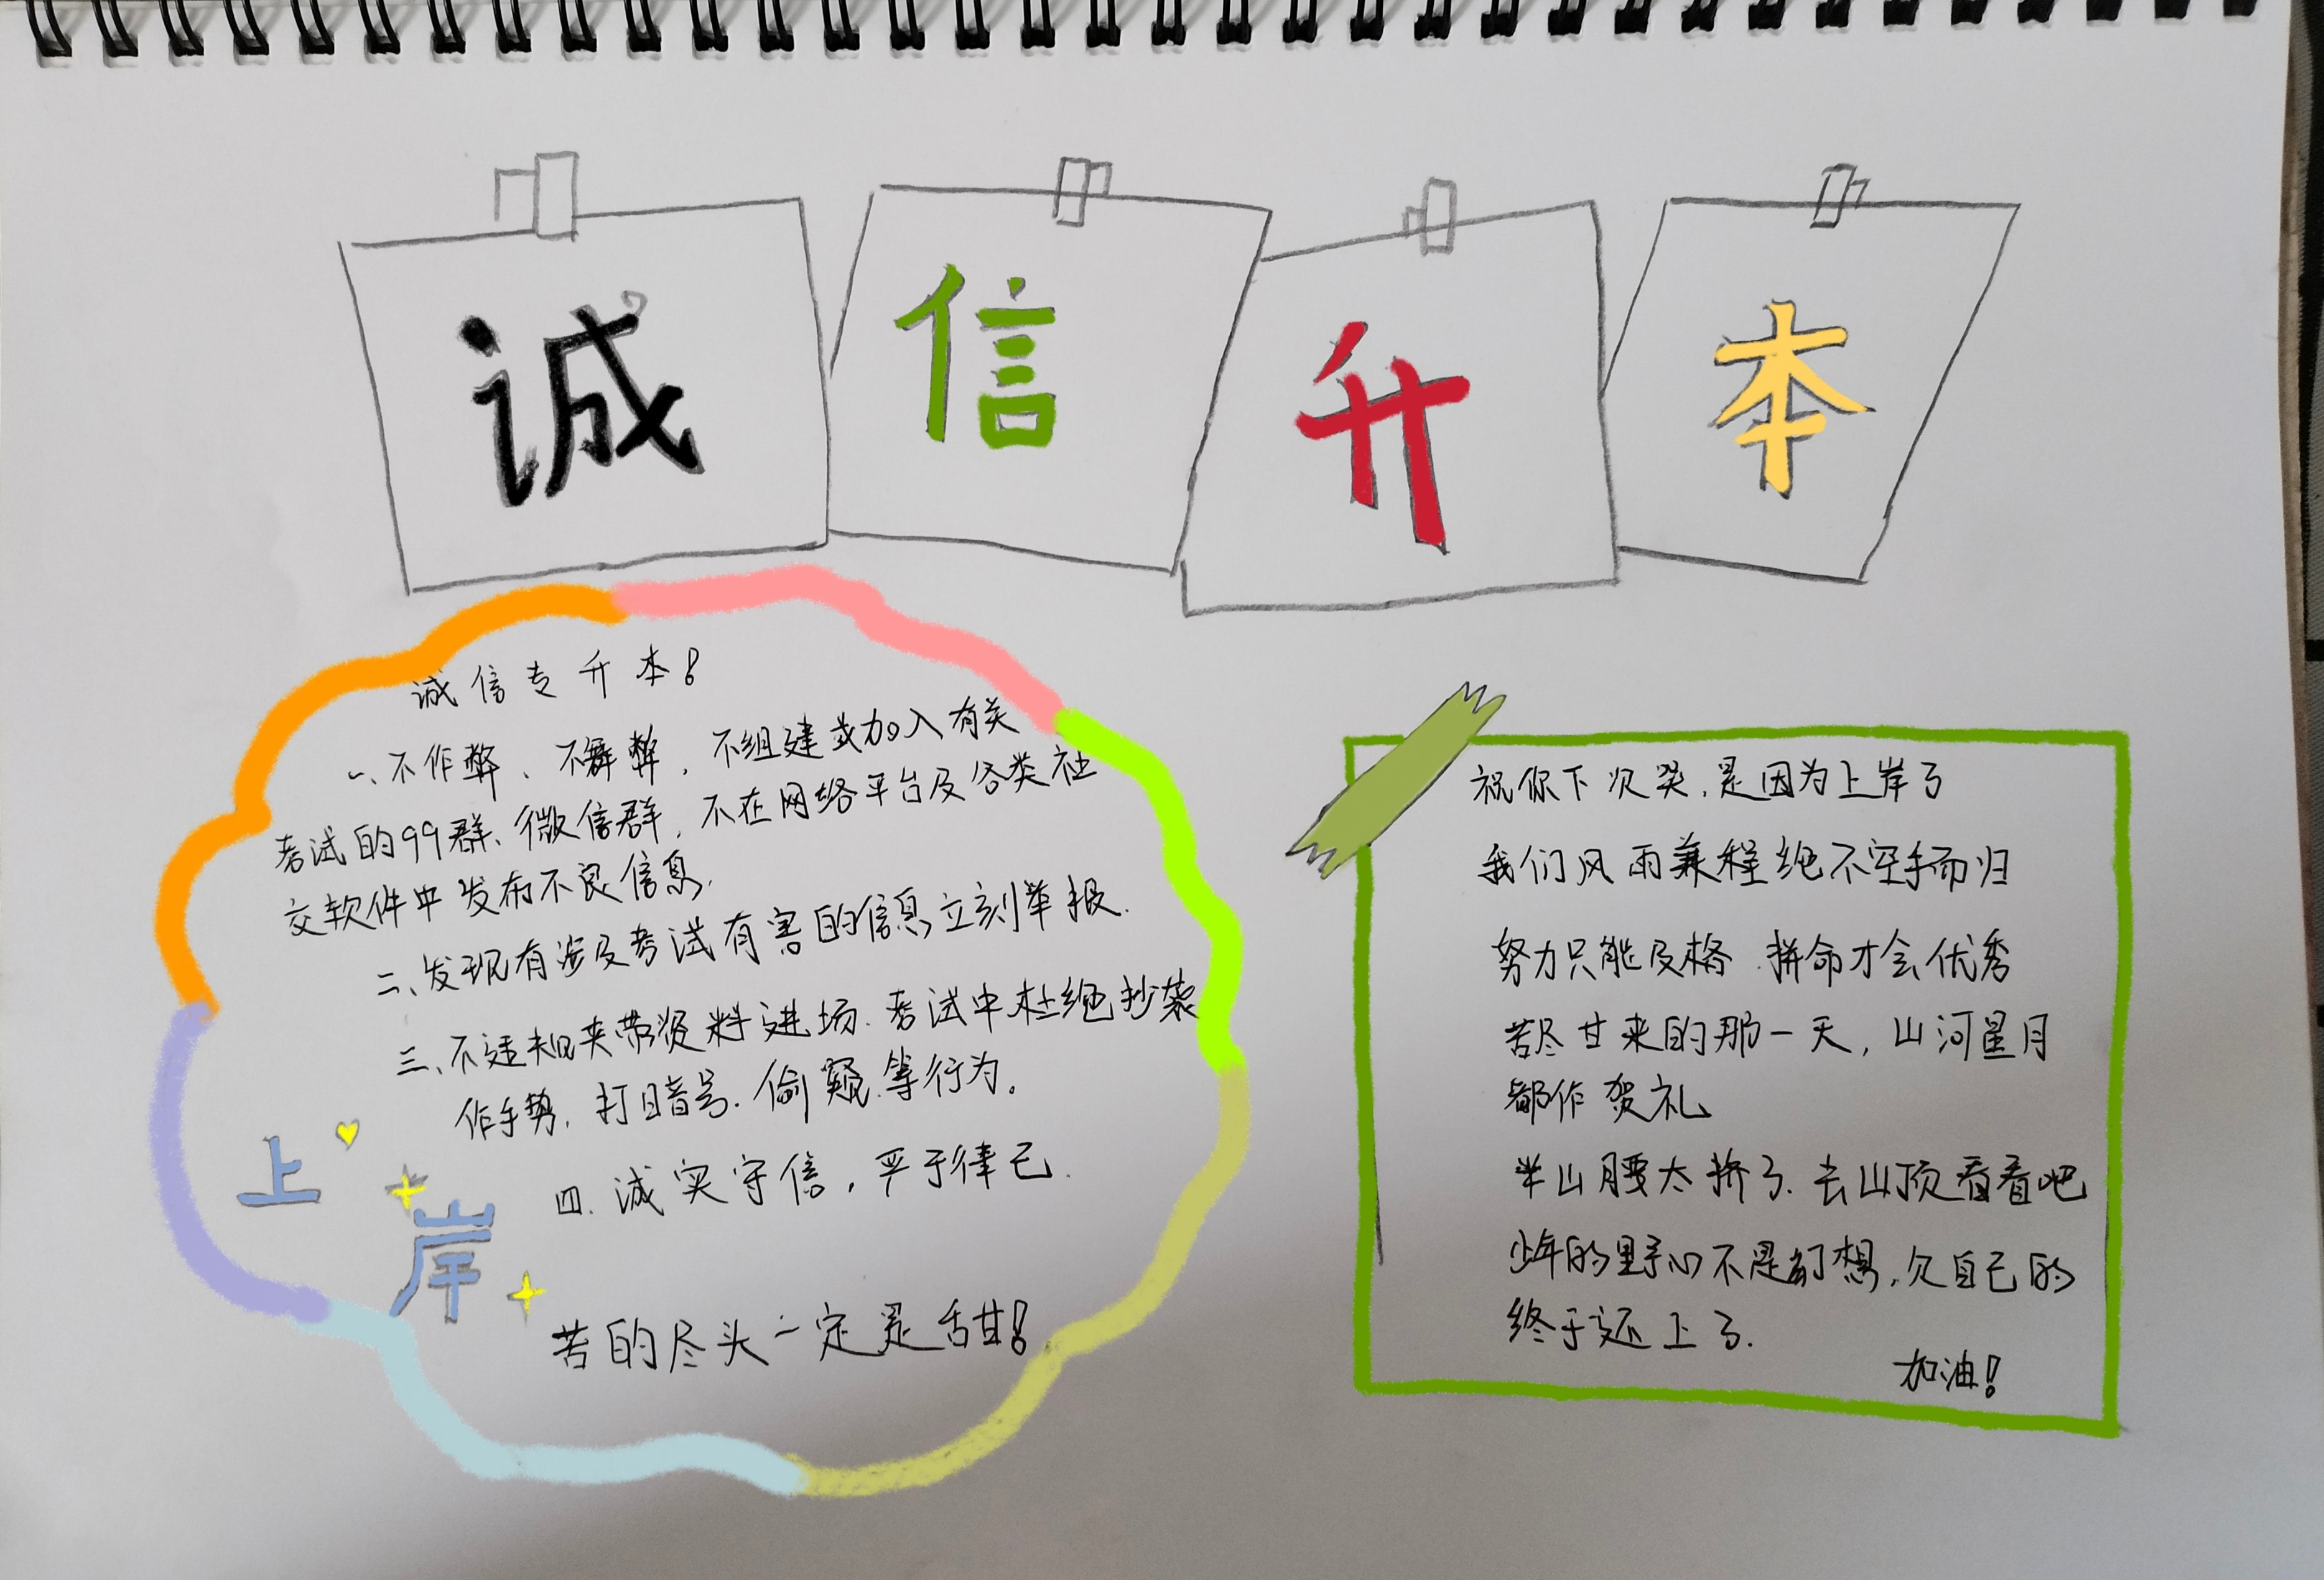 诚信升本
诚信专升本!
一、不作弊、不舞弊,不组建或加入有关
考试的99群、微信群,不在网络平台及各类社
交软件中发布不良信息.
二、发现有涉及考试有害的信息立刻举报.
三、不违规夹带资料进场.考试中杜绝抄袭
作手势,打暗号.偷窥.等行为。
四.诚实守信,严于律己.
上岸
苦的尽头一定是甜!
祝你下次哭,是因为上岸了
我们风雨兼程绝不空手而归
努力只能及格.拼命才会优秀
苦尽甘来的那一天,山河星月
都作贺礼
半山腰太挤了.去山顶看看吧
少年的野心不是幻想,欠自己的
终于还上了.
加油!